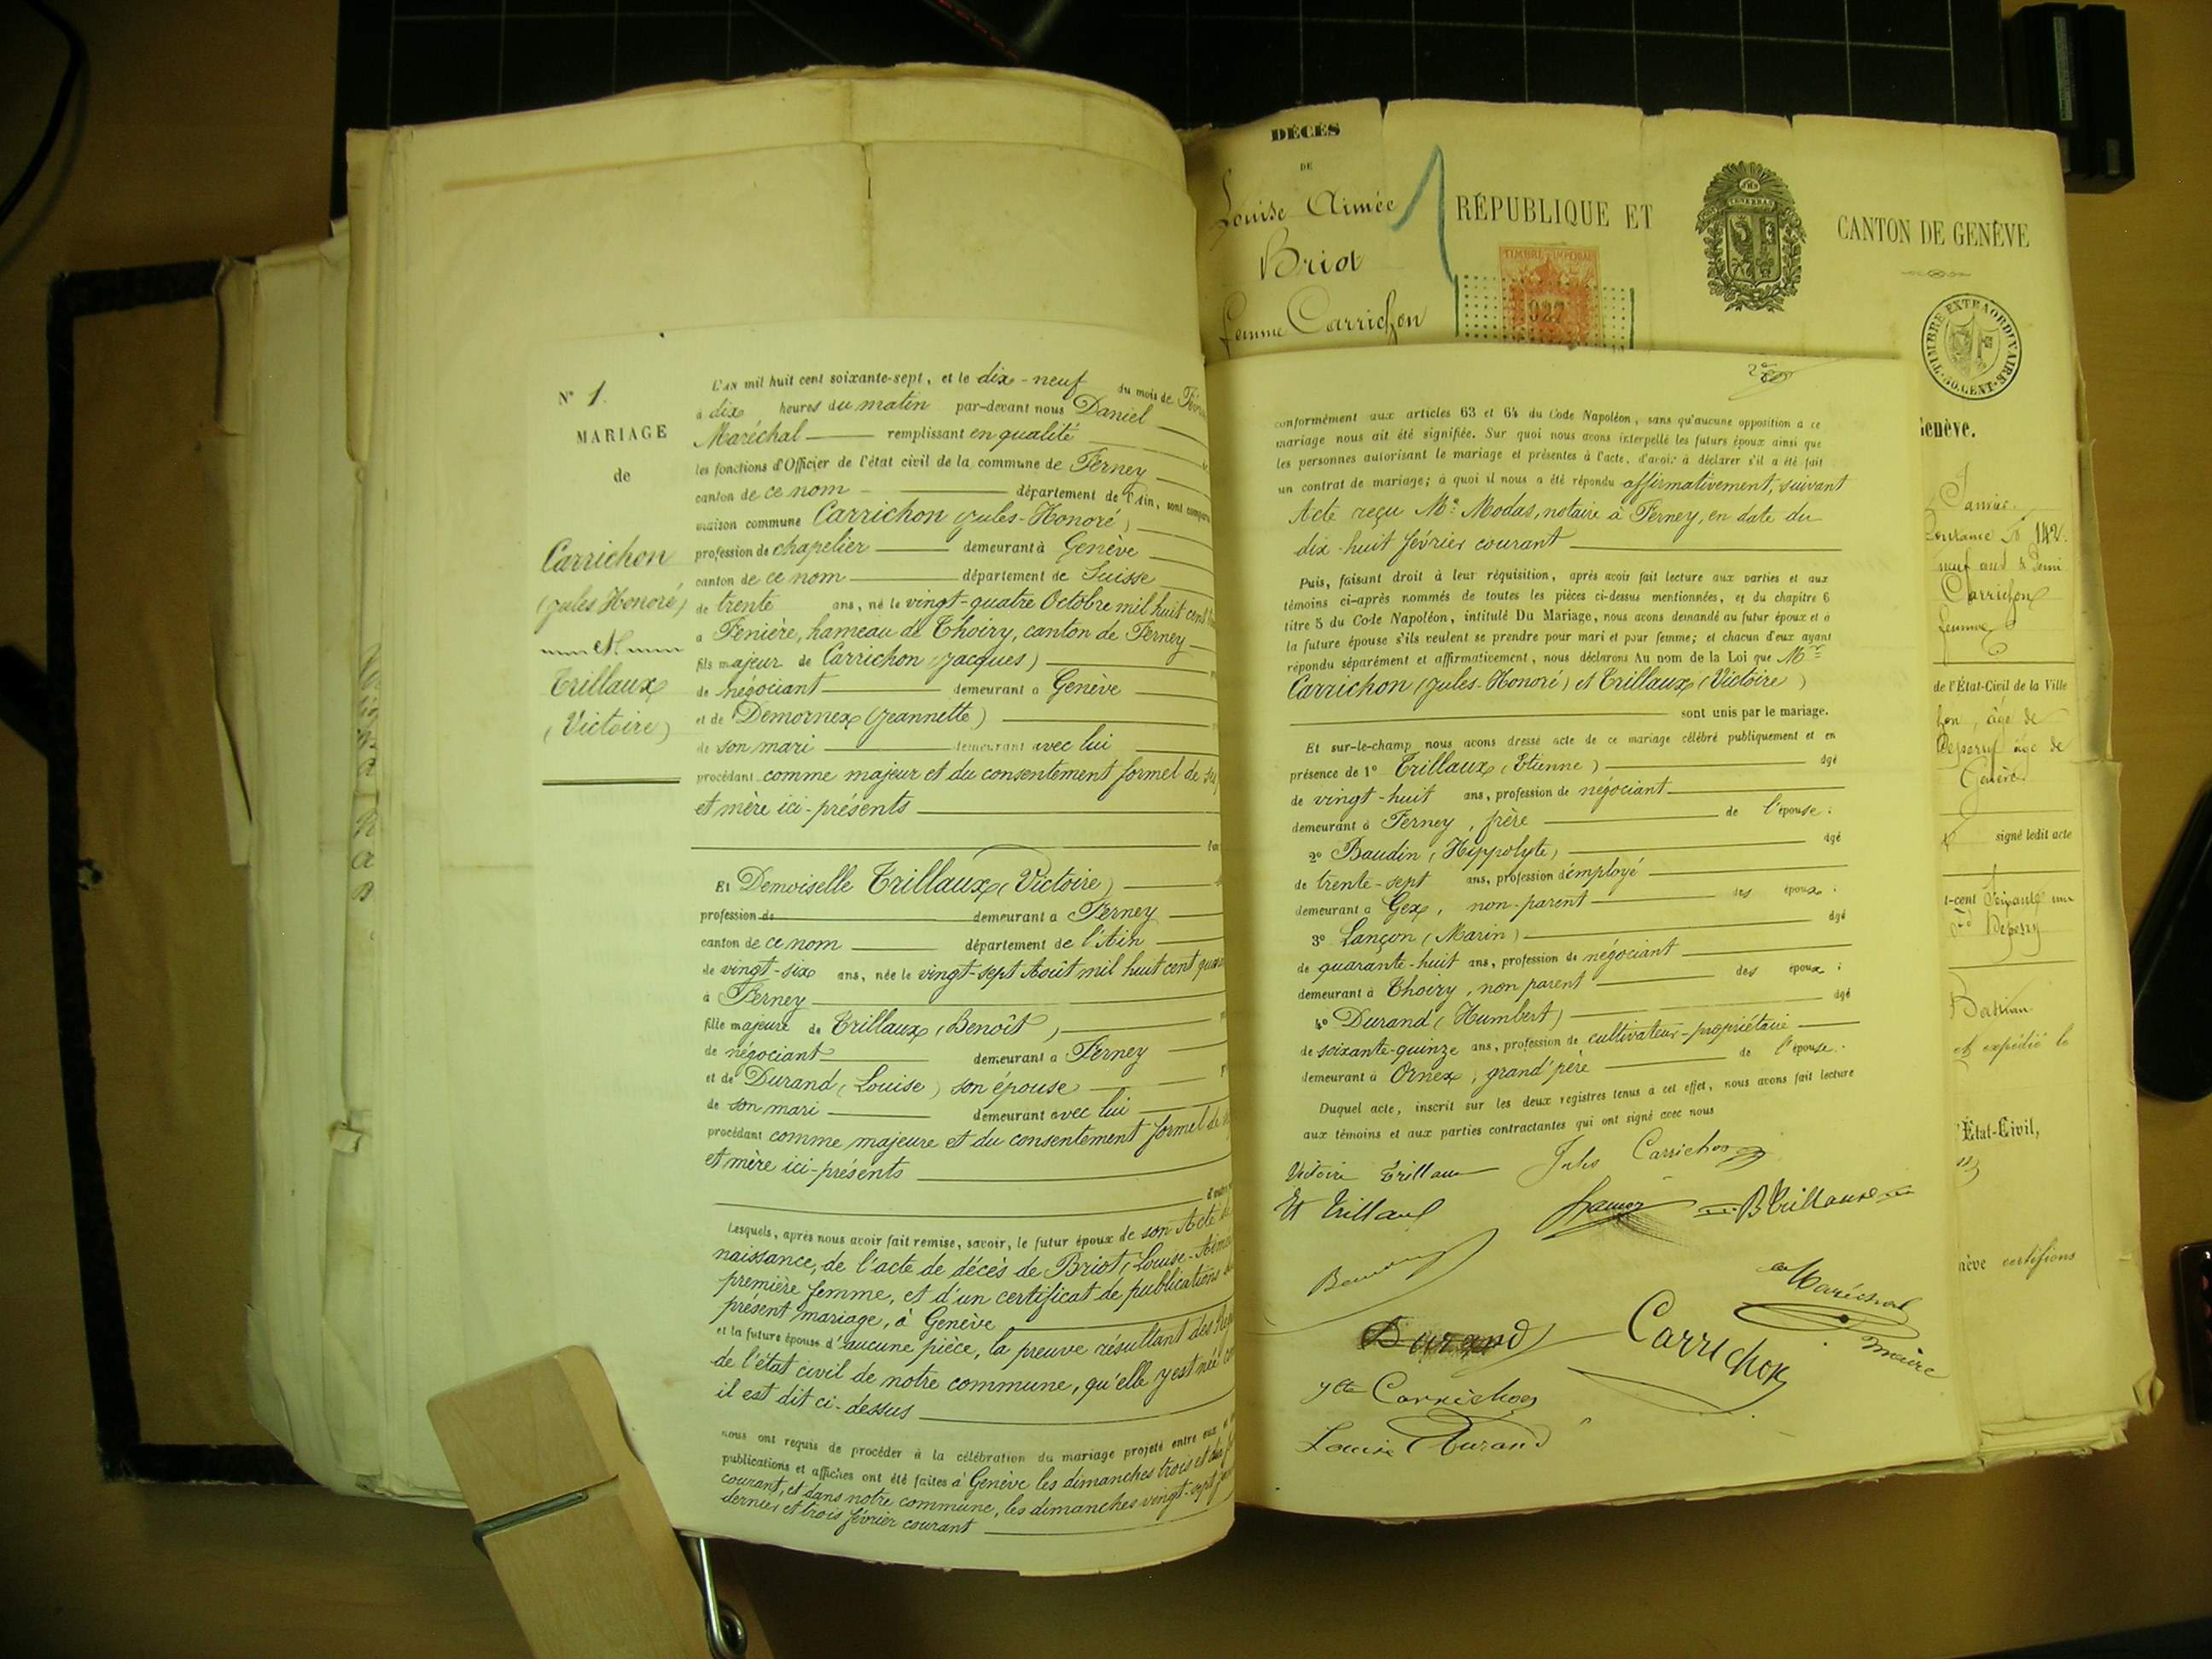 N° 1.
MARIAGE
de
Carrichon
(Jules Honoré)
Trillaux
(Victoire)
L'AN mil huit cent soixante-sept, et le dix-neuf du mois de
à dix heures du matin par-devant nous Daniel
Maréchal remplissant en qualité
les fonctions d'Officier de l'état civil de la commune de Ferney
canton de ce nom département de l'Ain, sont
maison commune Carrichon (Jules-Honoré)
profession de chapelier demeurant à Genève
canton de ce nom département de Suisse
de trente ans, né le vingt-quatre Octobre mil huit cent
a Fenière, hameau de Thoiry, canton de Ferney
fils majeur de Carrichon (Jacques)
de négociant demeurant a Genève
et de Demornex (Jeannette)
de son mari demeurant avec lui
procédant comme majeur et du consentement formel de
et mère ici-présents
Et Demoiselle Trillaux (Victoire)
profession de demeurant a Ferney
canton de ce nom département de l'Ain
de vingt-six ans, née le vingt-sept Août mil huit cent
à Ferney
fille majeure de Trillaux (Benoît)
de négociant demeurant a Ferney
et de Durand (Louise) son épouse
de son mari demeurant avec lui
procédant comme majeure et du consentement formel de
et mère ici-présents
Lesquels, après nous avoir fait remise, savoir, le futur époux de son Acte de
naissance, de l'acte de décès de Briot, Louise-Aimée
première femme, et d'un certificat de publications
présent mariage, à Genève
et la future épouse d'aucune pièce, la preuve résultant des
de l'état civil de notre commune, qu'elle y est née
il est dit ci-dessus
nous ont requis de procéder à la célébration du mariage projeté entre eux
publications et affiches ont été faites à Genève les dimanches trois et
courant, et dans notre commune, les dimanches vingt-sept
dernier et trois février courant
DÉCÈS
DE
Louise Aimée
Briot
femme Carrichon
RÉPUBLIQUE ET CANTON DE GENÈVE
TIMBRE IMPERIAL
927
TIMBRE EXTRAORDINAIRE
50. CENT.
conformément aux articles 63 et 64 du Code Napoléon, sans qu'aucune opposition a ce
mariage nous ait été signifiée. Sur quoi nous avons interpellé les futurs époux ainsi que
les personnes autorisant le mariage et présentes à l'acte, d'avoir à déclarer s'il a été fait
un contrat de mariage; à quoi il nous a été répondu affirmativement, suivant
Acte reçu Me Modas, notaire à Ferney, en date du
dix-huit février courant
Puis, faisant droit à leur réquisition, après avoir fait lecture aux parties et aux
témoins ci-après nommés de toutes les pièces ci-dessus mentionnées, et du chapitre 6
titre 5 du Code Napoléon, intitulé Du Mariage, nous avons demandé au futur époux et a
la future épouse s'ils veulent se prendre pour mari et pour femme; et chacun d'eux ayant
répondu séparément et affirmativement, nous déclarons Au nom de la Loi que Mr
Carrichon (Jules-Honoré) et Trillaux (Victoire)
sont unis par le mariage.
Et sur-le-champ nous avons dressé acte de ce mariage célébré publiquement et en
présence de 1° Trillaux (Etienne) âgé
de vingt-huit ans, profession de négociant
demeurant à Ferney, frère de l'épouse;
2° Baudin (Hippolyte) âgé
de trente-sept ans, profession d'employé
demeurant a Gex, non-parent des époux;
3° Lançon (Marin) âgé
de quarante-huit ans, profession de négociant
demeurant à Thoiry, non parent des époux;
4° Durand (Humbert) âgé
de soixante-quinze ans, profession de cultivateur-propriétaire
demeurant à Ornex, grand'père de l'épouse.
Duquel acte, inscrit sur les deux registres tenus à cet effet, nous avons fait lecture
aux témoins et aux parties contractantes qui ont signé avec nous
Victoire Trillaux Jules Carrichon
Et Trillaux BTrillaux
Maréchal
maire
Durand Carrichon
Carrichon
Louise Durand
Genève.
142.
Carrichon
femme
de l'État-Civil de la Ville
âgé de
âge de
Genève
signé ledit acte
et expédié le
État-Civil,
certifions